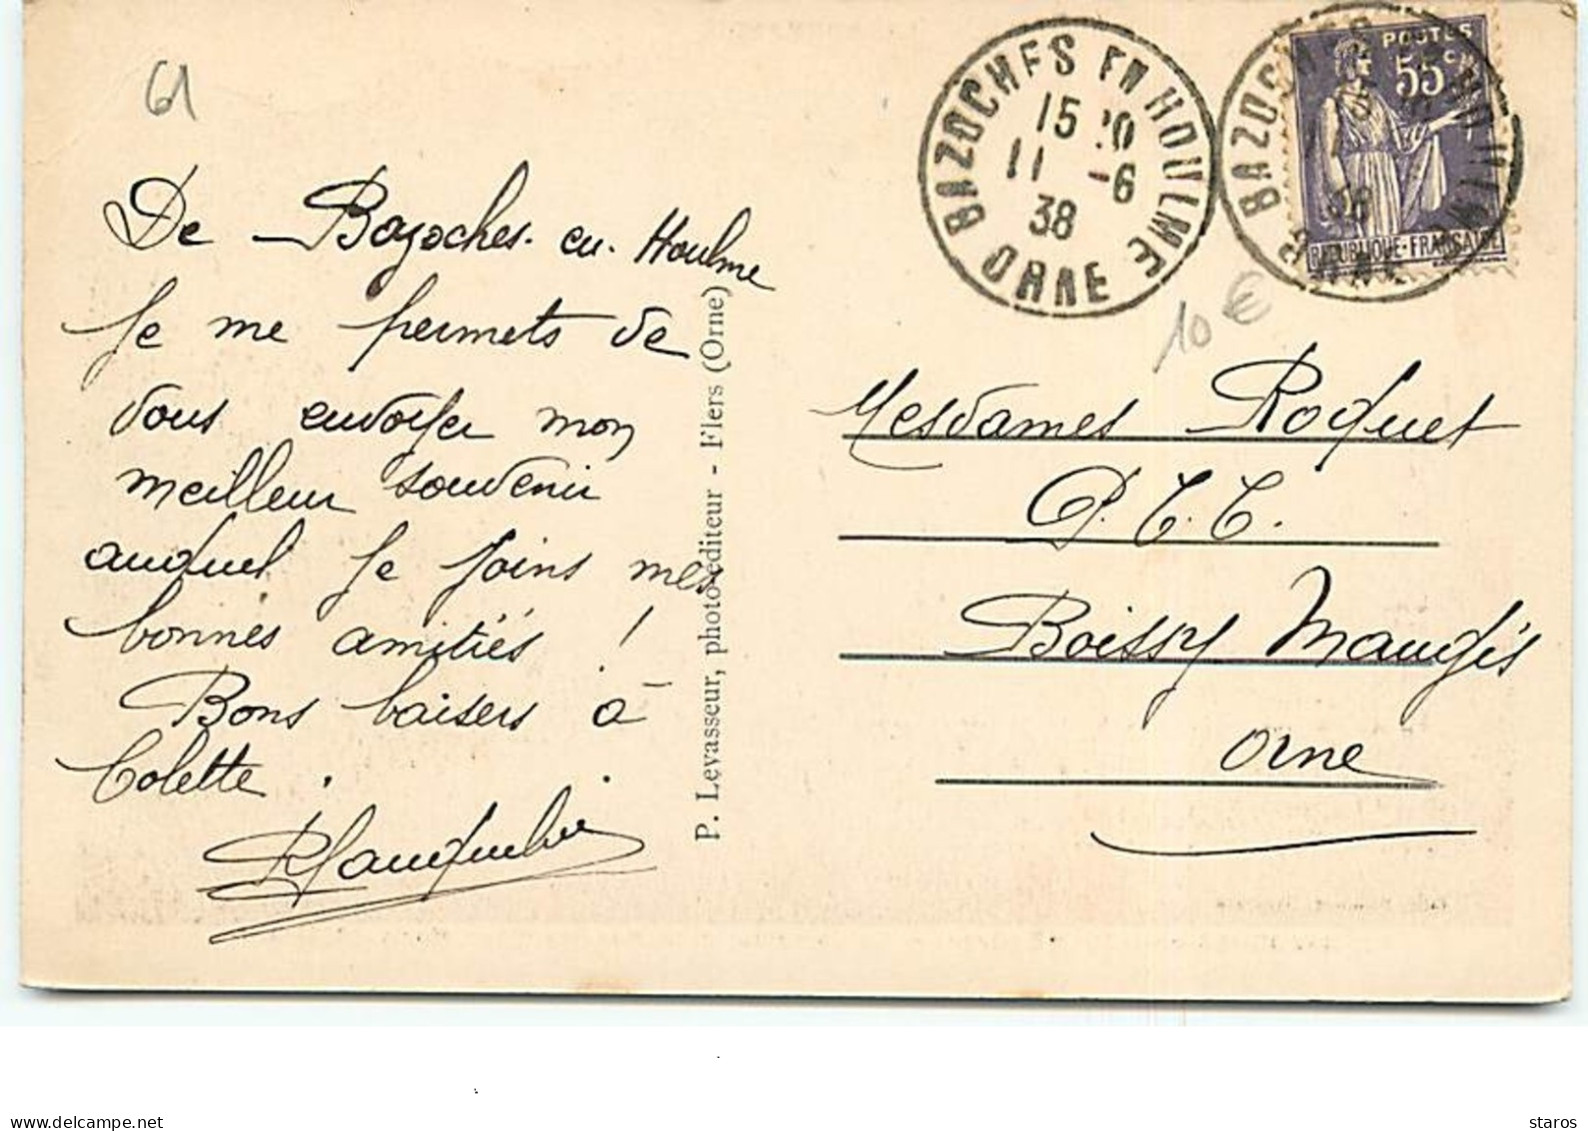 61
De Bazoches-en-Houlme
Je me permets de
vous envoyer mon
meilleur souvenir
auquel je joins mes
bonnes amitiés !
Bons baisers à
Colette.
P. Levasseur, photo-éditeur - Flers (Orne)
BAZOCHES EN HOULME
15 20
11 -6
38
ORNE
POSTES
55c
REPUBLIQUE-FRANÇAISE
10 €
Mesdames Roquet
P.T.T.
Boissy Maugis
Orne
delcampe.net
staros